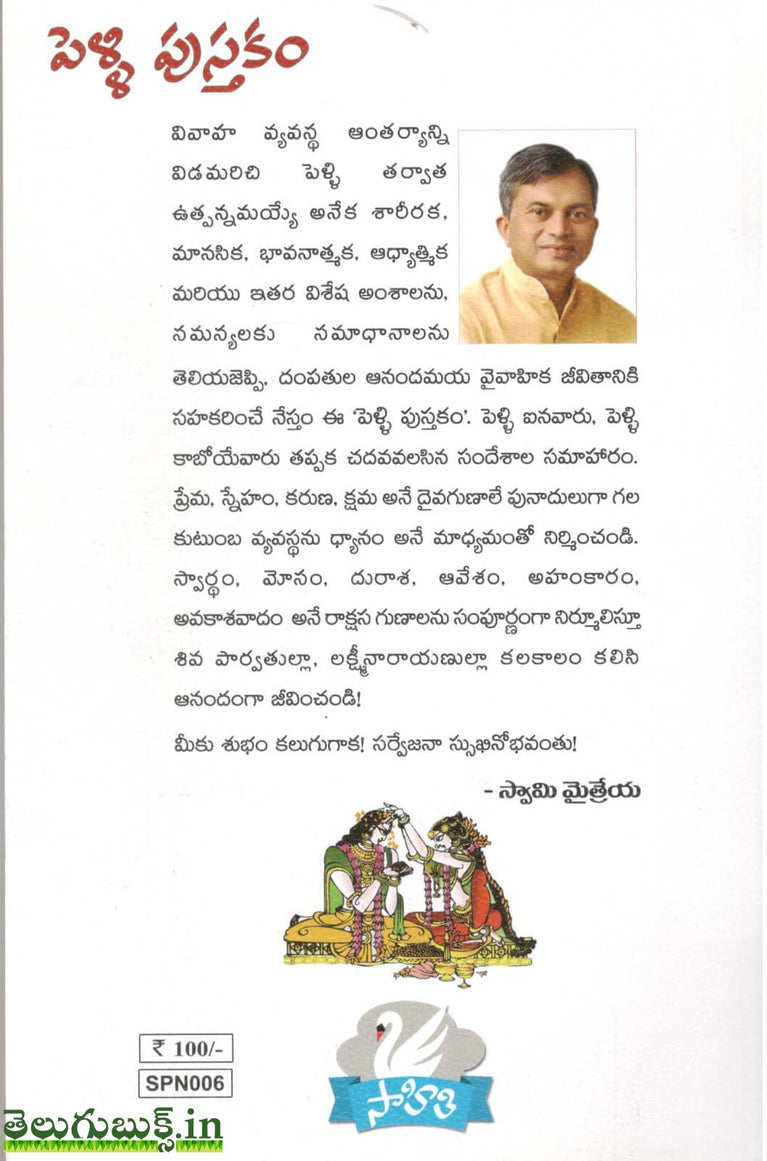 పెళ్ళి పుస్తకం
వివాహ వ్యవస్థ ఆంతర్యాన్ని
విడమరిచి పెళ్ళి తర్వాత
ఉత్పన్నమయ్యే అనేక శారీరక,
మానసిక, భావనాత్మక, ఆధ్యాత్మిక
మరియు ఇతర విశేష అంశాలను,
సమస్యలకు సమాధానాలను
తెలియజెప్పి, దంపతుల ఆనందమయ వైవాహిక జీవితానికి
సహకరించే నేస్తం ఈ 'పెళ్ళి పుస్తకం'. పెళ్ళి ఐనవారు, పెళ్ళి
కాబోయేవారు తప్పక చదవవలసిన సందేశాల సమాహారం.
ప్రేమ, స్నేహం, కరుణ, క్షమ అనే దైవగుణాలే పునాదులుగా గల
కుటుంబ వ్యవస్థను ధ్యానం అనే మాధ్యమంతో నిర్మించండి.
స్వార్థం, మోసం, దురాశ, ఆవేశం, అహంకారం,
అవకాశవాదం అనే రాక్షస గుణాలను సంపూర్ణంగా నిర్మూలిస్తూ
శివ పార్వతుల్లా, లక్ష్మీనారాయణుల్లా కలకాలం కలిసి
ఆనందంగా జీవించండి!
మీకు శుభం కలుగుగాక! సర్వేజనా స్సుఖినోభవంతు!
- స్వామి మైత్రేయ
₹ 100/-
SPN006
సాహితి
తెలుగుబుక్స్.in